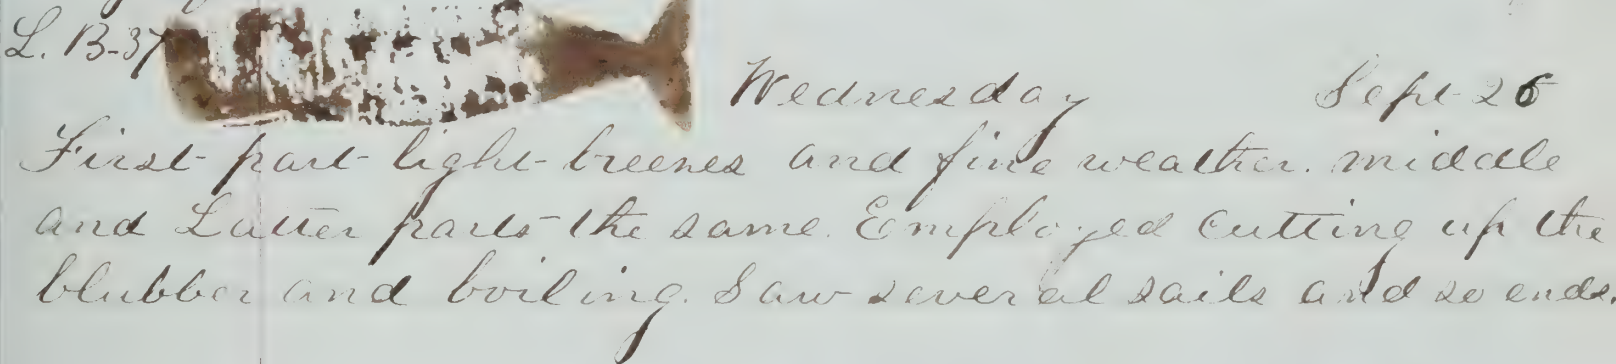 L. B-37
Wednesday Sept 26
First part light breezes and fine weather. middle
and Latter parts the same. Employed cutting up the
blubber and boiling. Saw several sails and so ends.